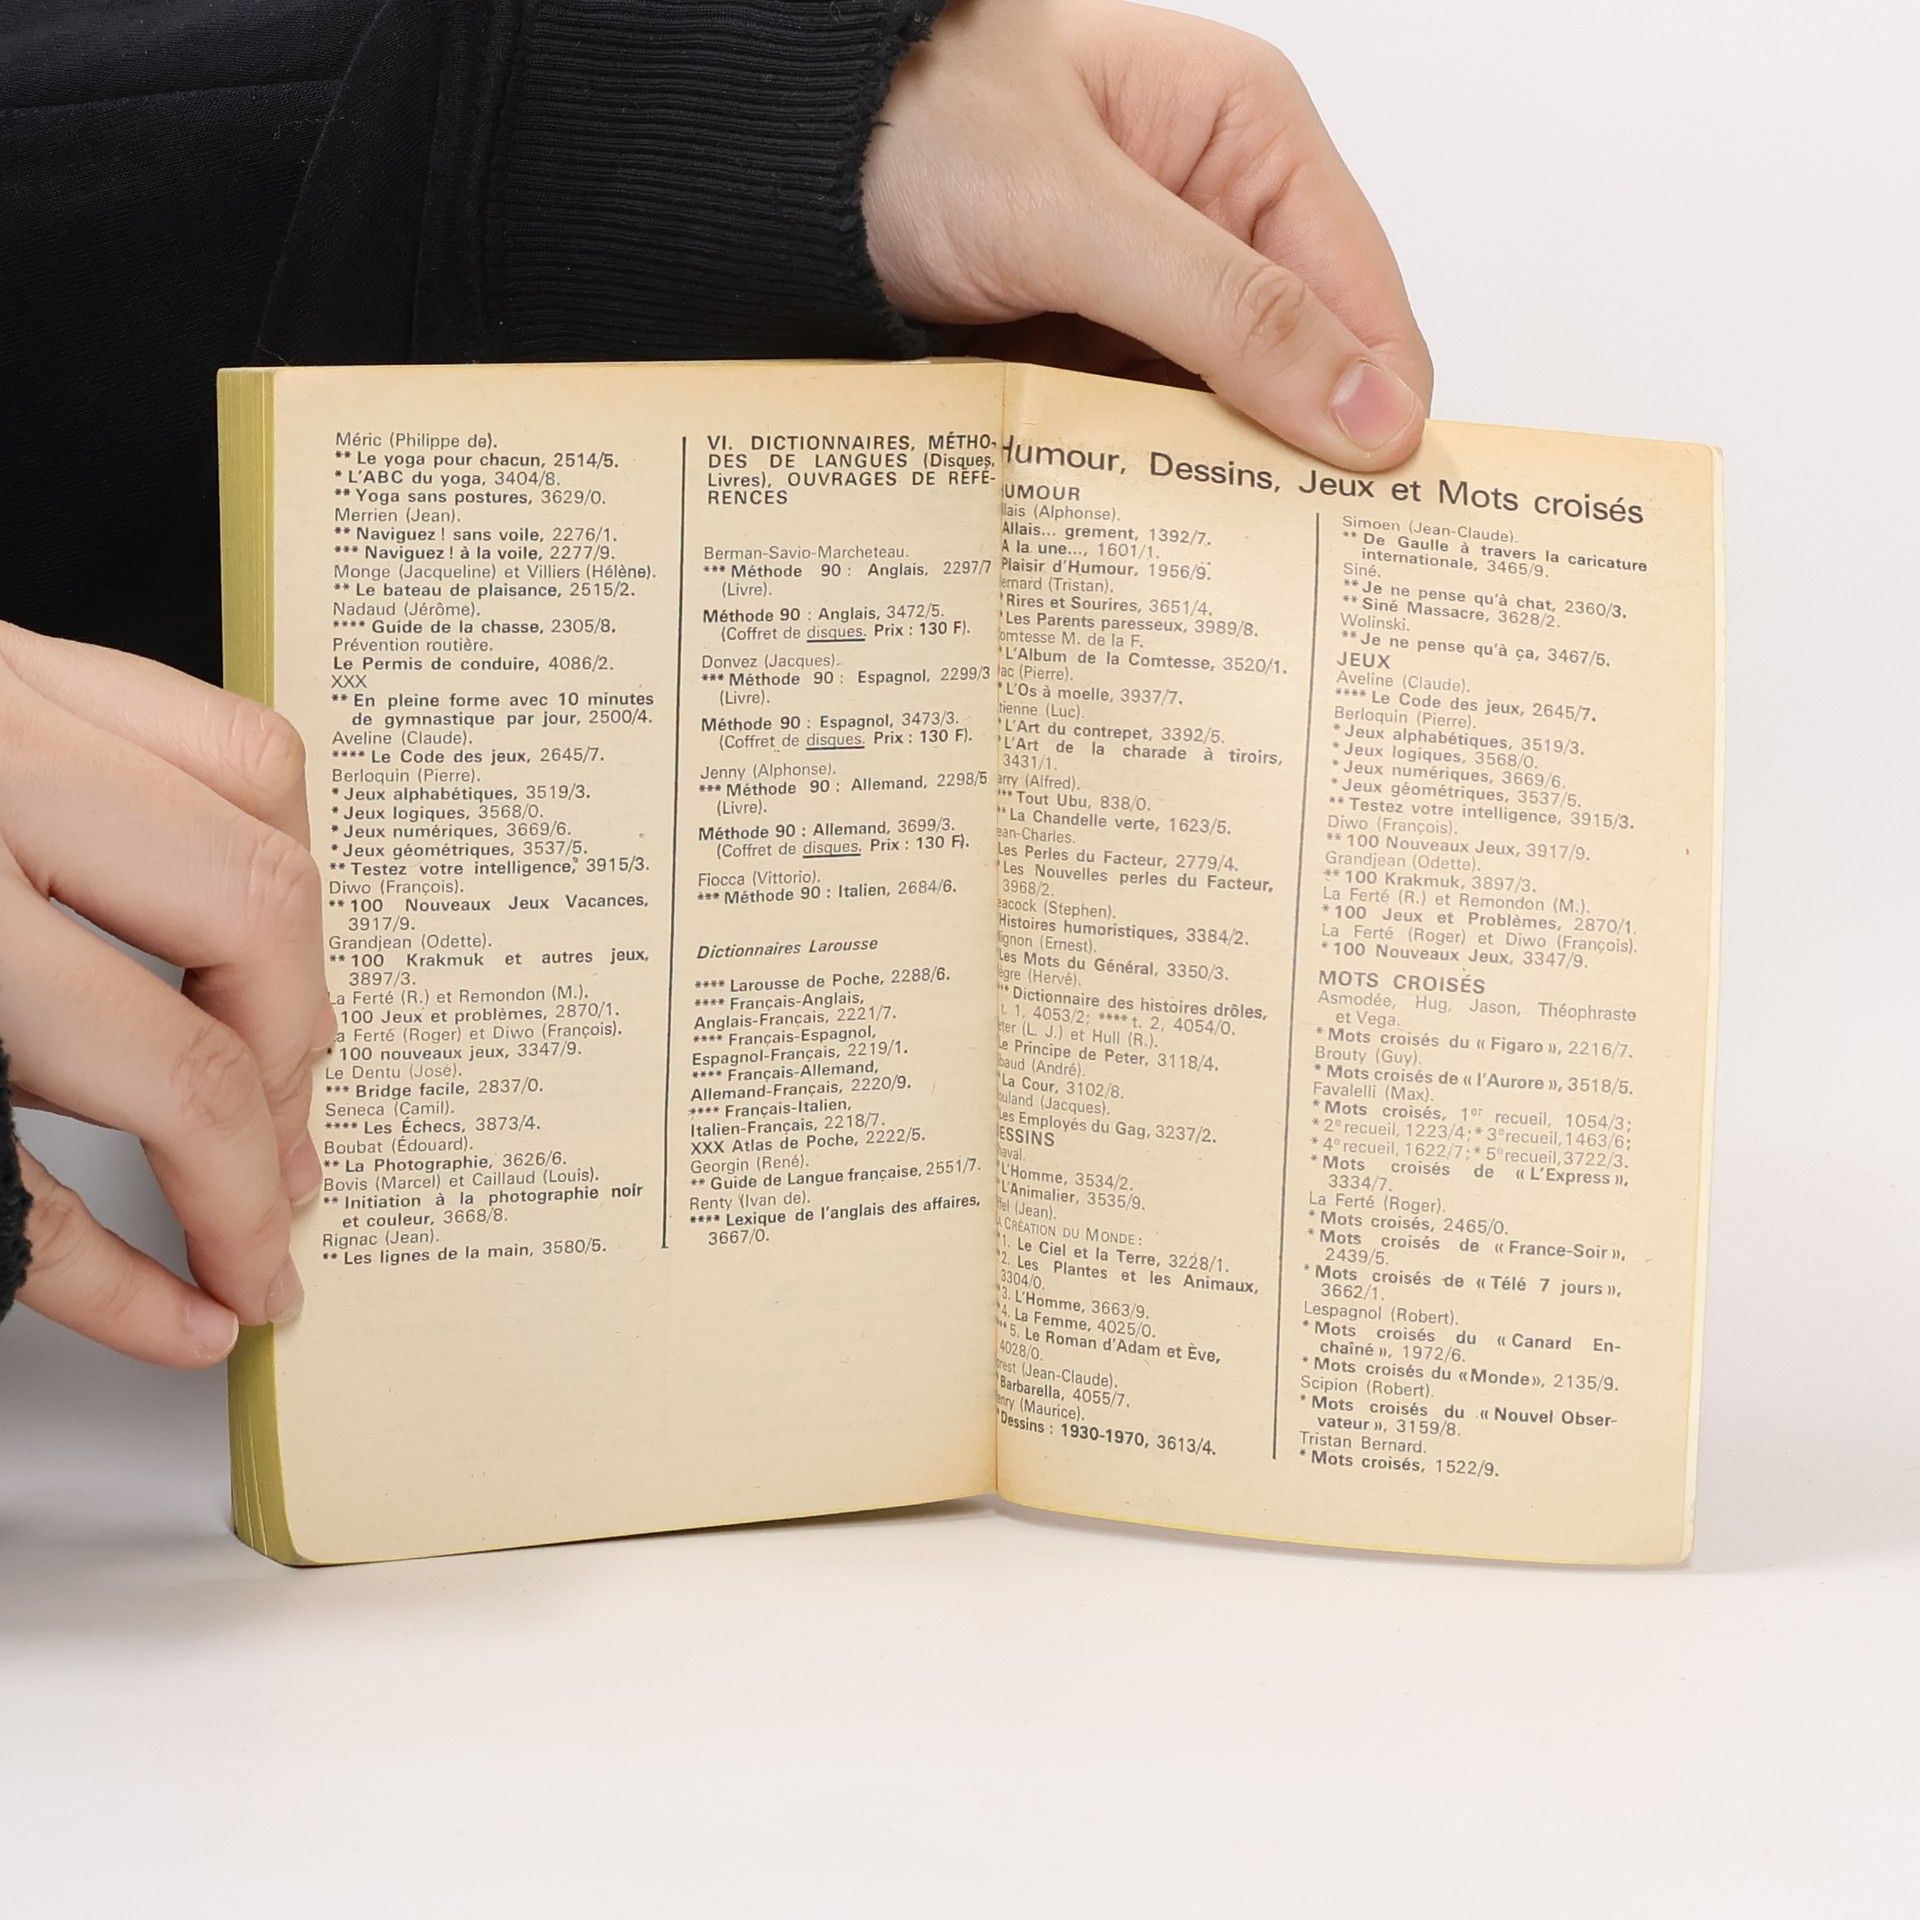 Méric (Philippe de).
** Le yoga pour chacun, 2514/5.
* L'ABC du yoga, 3404/8.
** Yoga sans postures, 3629/0.
Merrien (Jean).
** Naviguez ! sans voile, 2276/1.
*** Naviguez ! à la voile, 2277/9.
Monge (Jacqueline) et Villiers (Hélène).
** Le bateau de plaisance, 2515/2.
Nadaud (Jérôme).
**** Guide de la chasse, 2305/8.
Prévention routière.
Le Permis de conduire, 4086/2.
XXX
** En pleine forme avec 10 minutes
de gymnastique par jour, 2500/4.
Aveline (Claude).
**** Le Code des jeux, 2645/7.
Berloquin (Pierre).
* Jeux alphabétiques, 3519/3.
* Jeux logiques, 3568/0.
* Jeux numériques, 3669/6.
* Jeux géométriques, 3537/5.
** Testez votre intelligence, 3915/3.
Diwo (François).
** 100 Nouveaux Jeux Vacances,
3917/9.
Grandjean (Odette).
** 100 Krakmuk et autres jeux,
3897/3.
La Ferté (R.) et Remondon (M.).
100 Jeux et problèmes, 2870/1.
La Ferté (Roger) et Diwo (François).
* 100 nouveaux jeux, 3347/9.
Le Dentu (José).
*** Bridge facile, 2837/0.
Seneca (Camil).
**** Les Échecs, 3873/4.
Boubat (Édouard).
** La Photographie, 3626/6.
Bovis (Marcel) et Caillaud (Louis).
** Initiation à la photographie noir
et couleur, 3668/8.
Rignac (Jean).
** Les lignes de la main, 3580/5.
VI. DICTIONNAIRES, MÉTHO-
DES DE LANGUES (Disques,
Livres), OUVRAGES DE RÉFÉ-
RENCES
Berman-Savio-Marcheteau.
*** Méthode 90 : Anglais, 2297/7
(Livre).
Méthode 90 : Anglais, 3472/5.
(Coffret de disques. Prix : 130 F).
Donvez (Jacques).
*** Méthode 90 : Espagnol, 2299/3
(Livre).
Méthode 90 : Espagnol, 3473/3.
(Coffret de disques. Prix : 130 F).
Jenny (Alphonse).
*** Méthode 90 : Allemand, 2298/5
(Livre).
Méthode 90 : Allemand, 3699/3.
(Coffret de disques. Prix : 130 F).
Fiocca (Vittorio).
*** Méthode 90 : Italien, 2684/6.
Dictionnaires Larousse
**** Larousse de Poche, 2288/6.
**** Français-Anglais,
Anglais-Français, 2221/7.
**** Français-Espagnol,
Espagnol-Français, 2219/1.
**** Français-Allemand,
Allemand-Français, 2220/9.
**** Français-Italien,
Italien-Français, 2218/7.
XXX Atlas de Poche, 2222/5.
Georgin (René).
** Guide de Langue française, 2551/7.
Renty (Ivan de).
**** Lexique de l'anglais des affaires,
3667/0.
Humour, Dessins, Jeux et Mots croisés
HUMOUR
llais (Alphonse).
Allais... grement, 1392/7.
A la une..., 1601/1.
Plaisir d'Humour, 1956/9.
ernard (Tristan).
* Rires et Sourires, 3651/4.
* Les Parents paresseux, 3989/8.
omtesse M. de la F.
* L'Album de la Comtesse, 3520/1.
ac (Pierre).
* L'Os à moelle, 3937/7.
tienne (Luc).
* L'Art du contrepet, 3392/5.
* L'Art de la charade à tiroirs,
3431/1.
arry (Alfred).
*** Tout Ubu, 838/0.
** La Chandelle verte, 1623/5.
ean-Charles.
Les Perles du Facteur, 2779/4.
* Les Nouvelles perles du Facteur,
3968/2.
eacock (Stephen).
Histoires humoristiques, 3384/2.
ignon (Ernest).
Les Mots du Général, 3350/3.
ègre (Hervé).
*** Dictionnaire des histoires drôles,
t. 1, 4053/2; **** t. 2, 4054/0.
eter (L. J.) et Hull (R.).
Le Principe de Peter, 3118/4.
ibaud (André).
* La Cour, 3102/8.
ouland (Jacques).
Les Employés du Gag, 3237/2.
DESSINS
haval.
* L'Homme, 3534/2.
* L'Animalier, 3535/9.
ffel (Jean).
LA CRÉATION DU MONDE :
* 1. Le Ciel et la Terre, 3228/1.
* 2. Les Plantes et les Animaux,
3304/0.
* 3. L'Homme, 3663/9.
* 4. La Femme, 4025/0.
** 5. Le Roman d'Adam et Ève,
4028/0.
orest (Jean-Claude).
* Barbarella, 4055/7.
enry (Maurice).
* Dessins : 1930-1970, 3613/4.
Simoen (Jean-Claude).
** De Gaulle à travers la caricature
internationale, 3465/9.
Siné.
** Je ne pense qu'à chat, 2360/3.
** Siné Massacre, 3628/2.
Wolinski.
** Je ne pense qu'à ça, 3467/5.
JEUX
Aveline (Claude).
**** Le Code des jeux, 2645/7.
Berloquin (Pierre).
* Jeux alphabétiques, 3519/3.
* Jeux logiques, 3568/0.
* Jeux numériques, 3669/6.
* Jeux géométriques, 3537/5.
** Testez votre intelligence, 3915/3.
Diwo (François).
** 100 Nouveaux Jeux, 3917/9.
Grandjean (Odette).
** 100 Krakmuk, 3897/3.
La Ferté (R.) et Remondon (M.).
* 100 Jeux et Problèmes, 2870/1.
La Ferté (Roger) et Diwo (François).
* 100 Nouveaux Jeux, 3347/9.
MOTS CROISÉS
Asmodée, Hug, Jason, Théophraste
et Vega.
* Mots croisés du « Figaro », 2216/7.
Brouty (Guy).
* Mots croisés de « l'Aurore », 3518/5.
Favalelli (Max).
* Mots croisés, 1er recueil, 1054/3;
* 2e recueil, 1223/4; * 3e recueil, 1463/6;
* 4e recueil, 1622/7; * 5e recueil, 3722/3.
* Mots croisés de « L'Express »,
3334/7.
La Ferté (Roger).
* Mots croisés, 2465/0.
* Mots croisés de « France-Soir »,
2439/5.
* Mots croisés de « Télé 7 jours »,
3662/1.
Lespagnol (Robert).
* Mots croisés du « Canard En-
chaîné », 1972/6.
* Mots croisés du « Monde », 2135/9.
Scipion (Robert).
* Mots croisés du « Nouvel Obser-
vateur », 3159/8.
Tristan Bernard.
* Mots croisés, 1522/9.